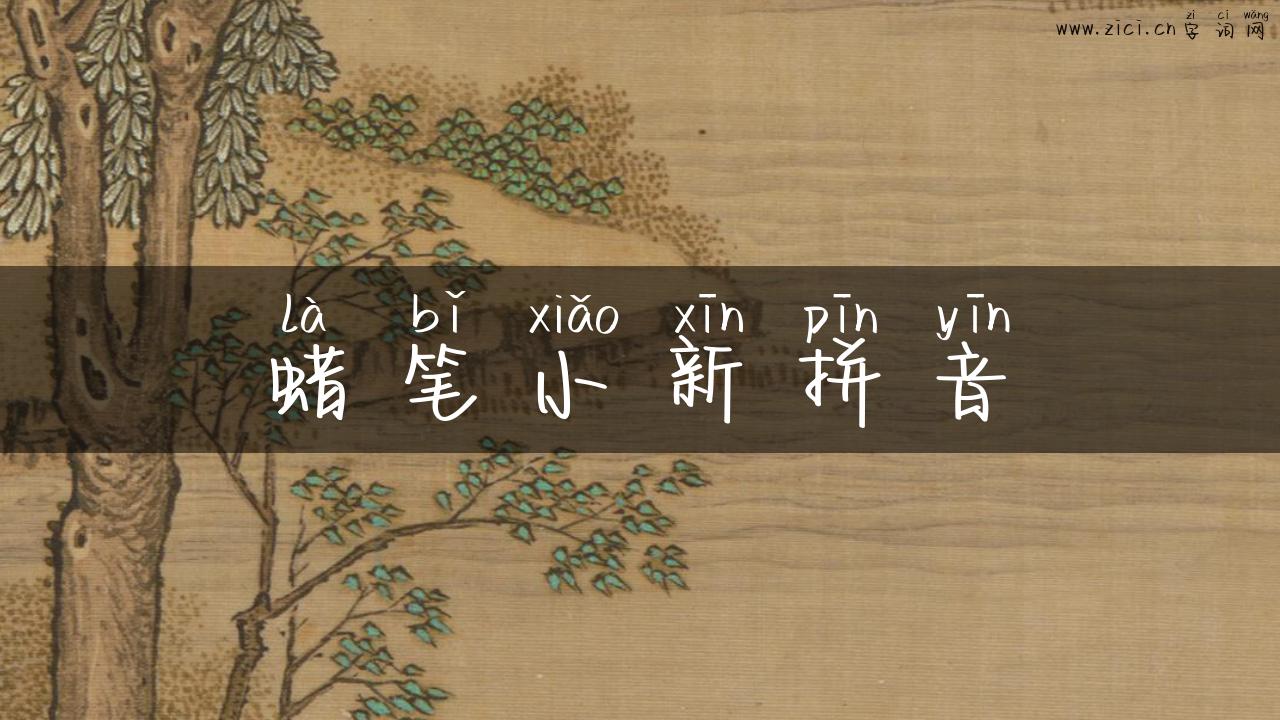 zì cí wǎng
www.zici.cn 字 词 网
là bǐ xiǎo xīn pīn yīn
蜡 笔 小 新 拼 音